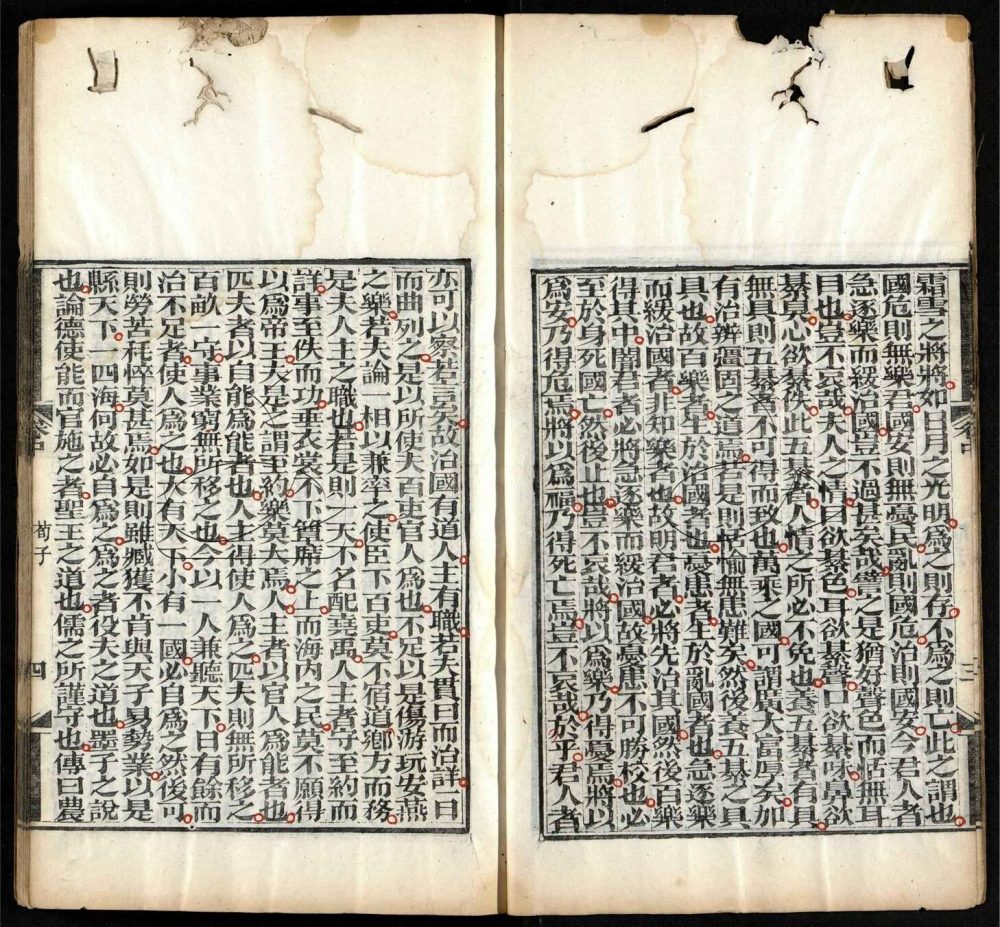 霜雪之將將如日月之光明爲之則存不爲之則亡此之謂也
國危則無樂君國安則無憂民亂則國危治則國安今君人者
急逐樂而緩治國豈不過甚矣哉譬之是猶好聲色而恬無耳
目也豈不哀哉夫人之情目欲綦色耳欲綦聲口欲綦味鼻欲
綦臭心欲綦佚此五綦者人情之所必不免也養五綦者有具
無具則五綦者不可得而致也萬乘之國可謂廣大富厚矣加
有治辨彊固之道焉若是則恬愉無患難矣然後養五綦之具
具也故百樂者生於治國者也憂患者生於亂國者也急逐樂
而緩治國者非知樂者也故明君者必將先治其國然後百樂
得其中闇君者必將急逐樂而緩治國故憂患不可勝校也必
至於身死國亡然後止也豈不哀哉將以爲樂乃得憂焉將以
爲安乃得危焉將以爲福乃得死亡焉豈不哀哉於乎君人者
亦可以察若言矣故治國有道人主有職若夫貫日而治詳一日
而曲列之是以所使夫百吏官人爲也不足以是傷游玩安燕
之樂若夫論一相以兼率之使臣下百吏莫不宿道鄉方而務
是夫人主之職也若是則一天下名配堯禹人主者守至約而
詳事至佚而功垂衣裳不下簟席之上而海内之民莫不願得
以爲帝王夫是之謂至約樂莫大焉人主者以官人爲能者也
匹夫者以自能爲能者也人主得使人爲之匹夫則無所移之
百畝一守事業窮無所移之也今以一人兼聽天下日有餘而
治不足者使人爲之也大有天下小有一國必自爲之然後可
則勞苦秏悴莫甚焉如是則雖臧獲不肯與天子易勢業以是
縣天下一四海何故必自爲之爲之者役夫之道也墨子之說
也論德使能而官施之者聖王之道也儒之所謹守也傳曰農
荀子
四